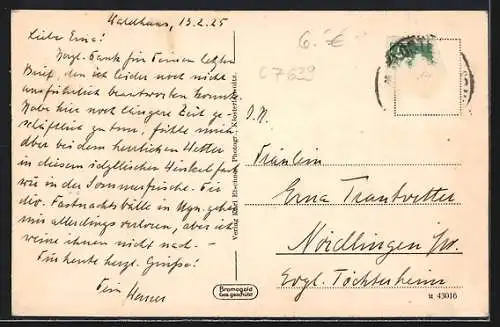 Waldhaus, 13.2.25
Liebe Erna!
Herzl. Dank für Deinen letzten
Brief, den ich leider noch nicht
ausführlich beantworten konnte.
Habe hier noch längere Zeit ge-
schäftlich zu tun, fühle mich
aber bei dem herrlichen Wetter
in diesem idyllischen Winkel fast
wie in der Sommerfrische. Die
div. Fastnachtsbälle in gehen
mir allerdings verloren, aber ich
weine ihnen nicht nach.-
Für heute herzl. Grüße!
Dein
Verlag Karl Photogr., Klosterlechfeld.
6.-€
C7639
D. R.
Fräulein
Erna Trautvetter
Nördlingen /W.
Evgl. Töchterheim
Bromogold
Ges. geschützt
u 43016